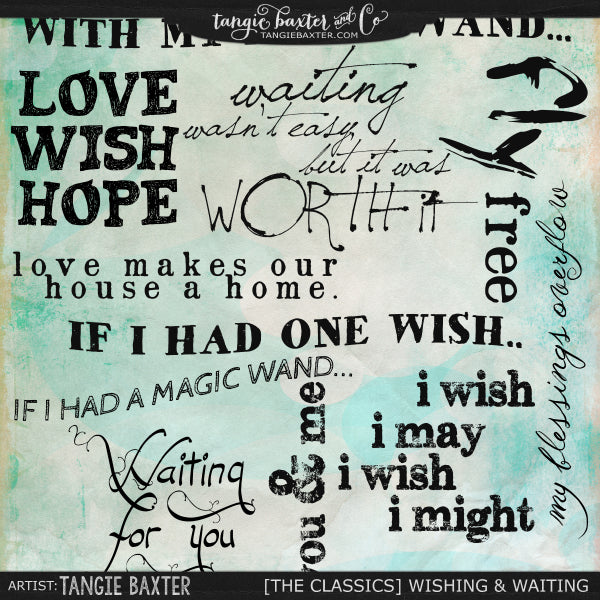 tangie baxter and Co
TANGIEBAXTER.COM
WITH MY
WAND...
LOVE
WISH
HOPE
waiting
wasn't easy
but it was
WORTH it
fly
free
my blessings overflow
love makes our
house a home.
IF I HAD ONE WISH..
IF I HAD A MAGIC WAND...
you & me
i wish
i may
i wish
i might
Waiting
for you
ARTIST: TANGIE BAXTER
[THE CLASSICS] WISHING & WAITING